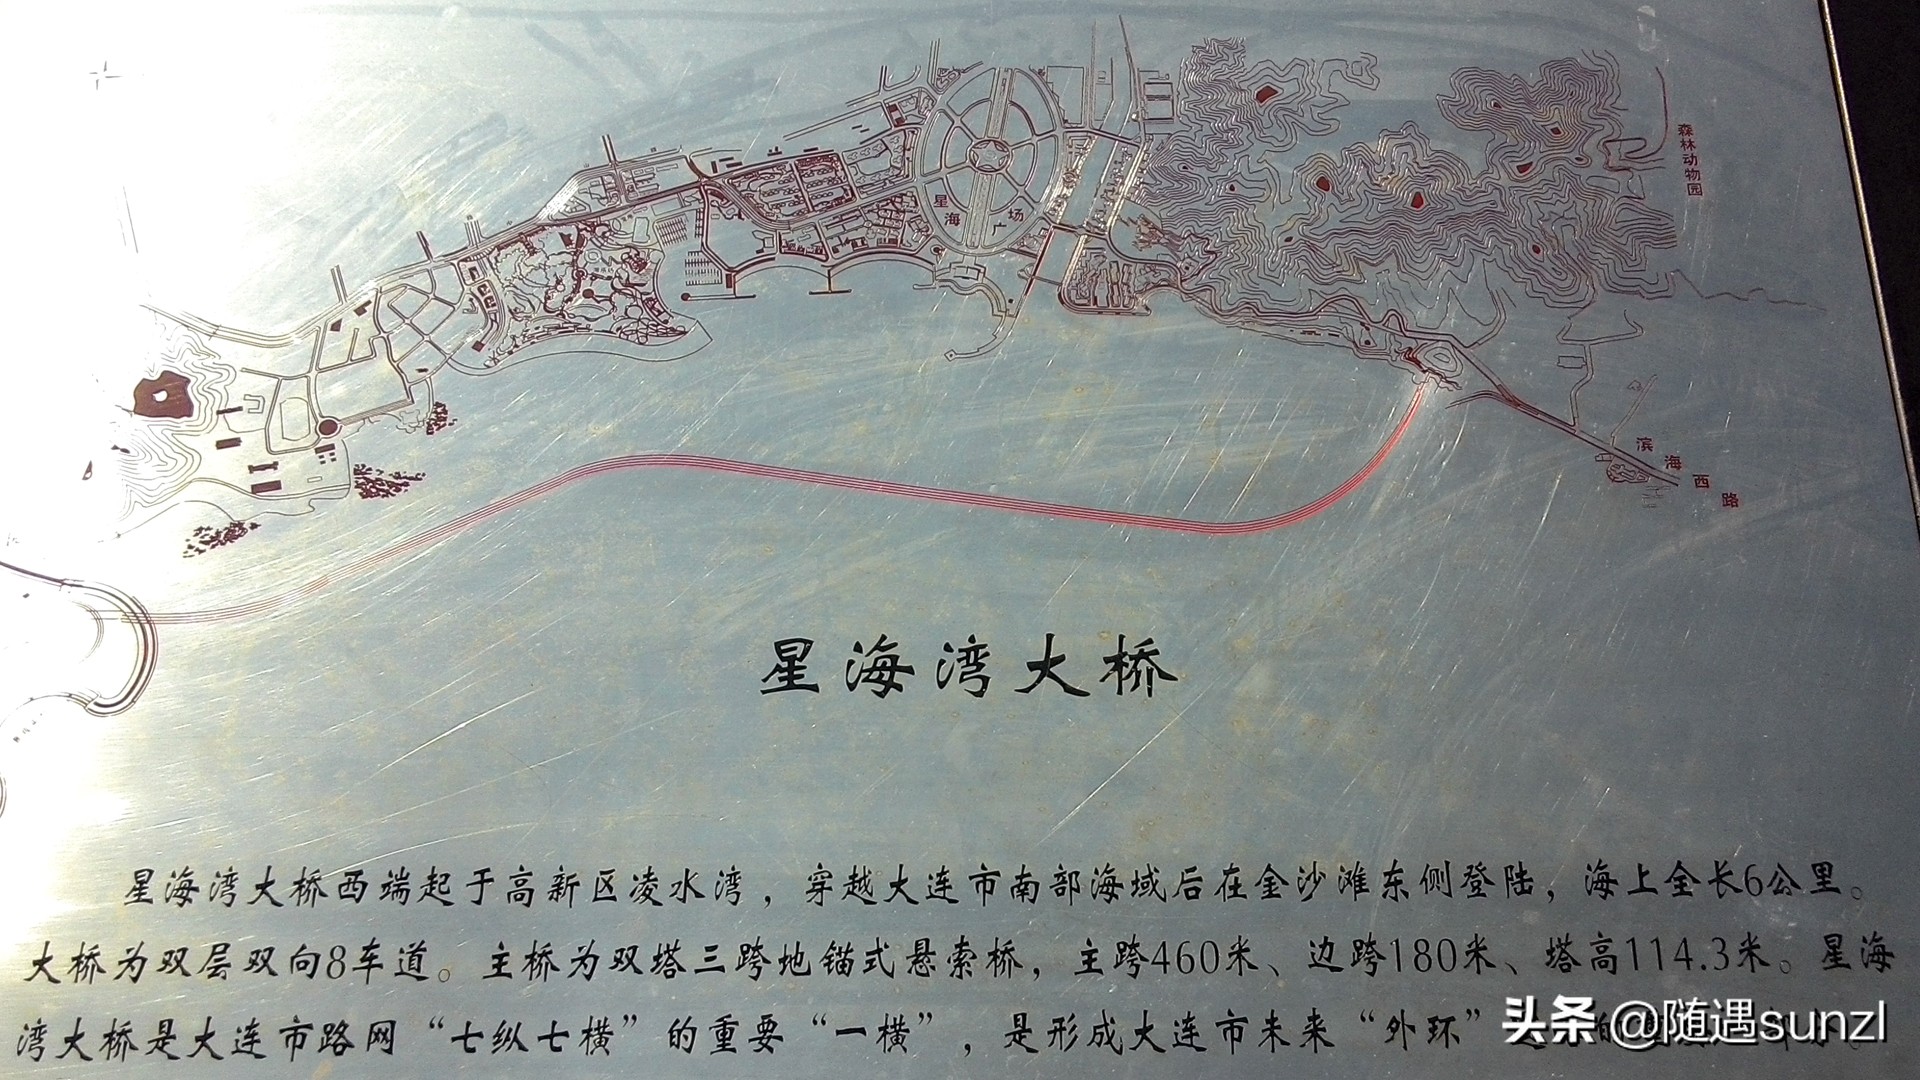 森林动物园
星海广场
滨海西路
星海湾大桥
星海湾大桥西端起于高新区凌水湾，穿越大连市南部海域后在金沙滩东侧登陆，海上全长6公里。
大桥为双层双向8车道。主桥为双塔三跨地锚式悬索桥，主跨460米、边跨180米、塔高114.3米。星海
湾大桥是大连市路网“七纵七横”的重要“一横”，是形成大连市未来“外环”
头条 @随遇sunzl